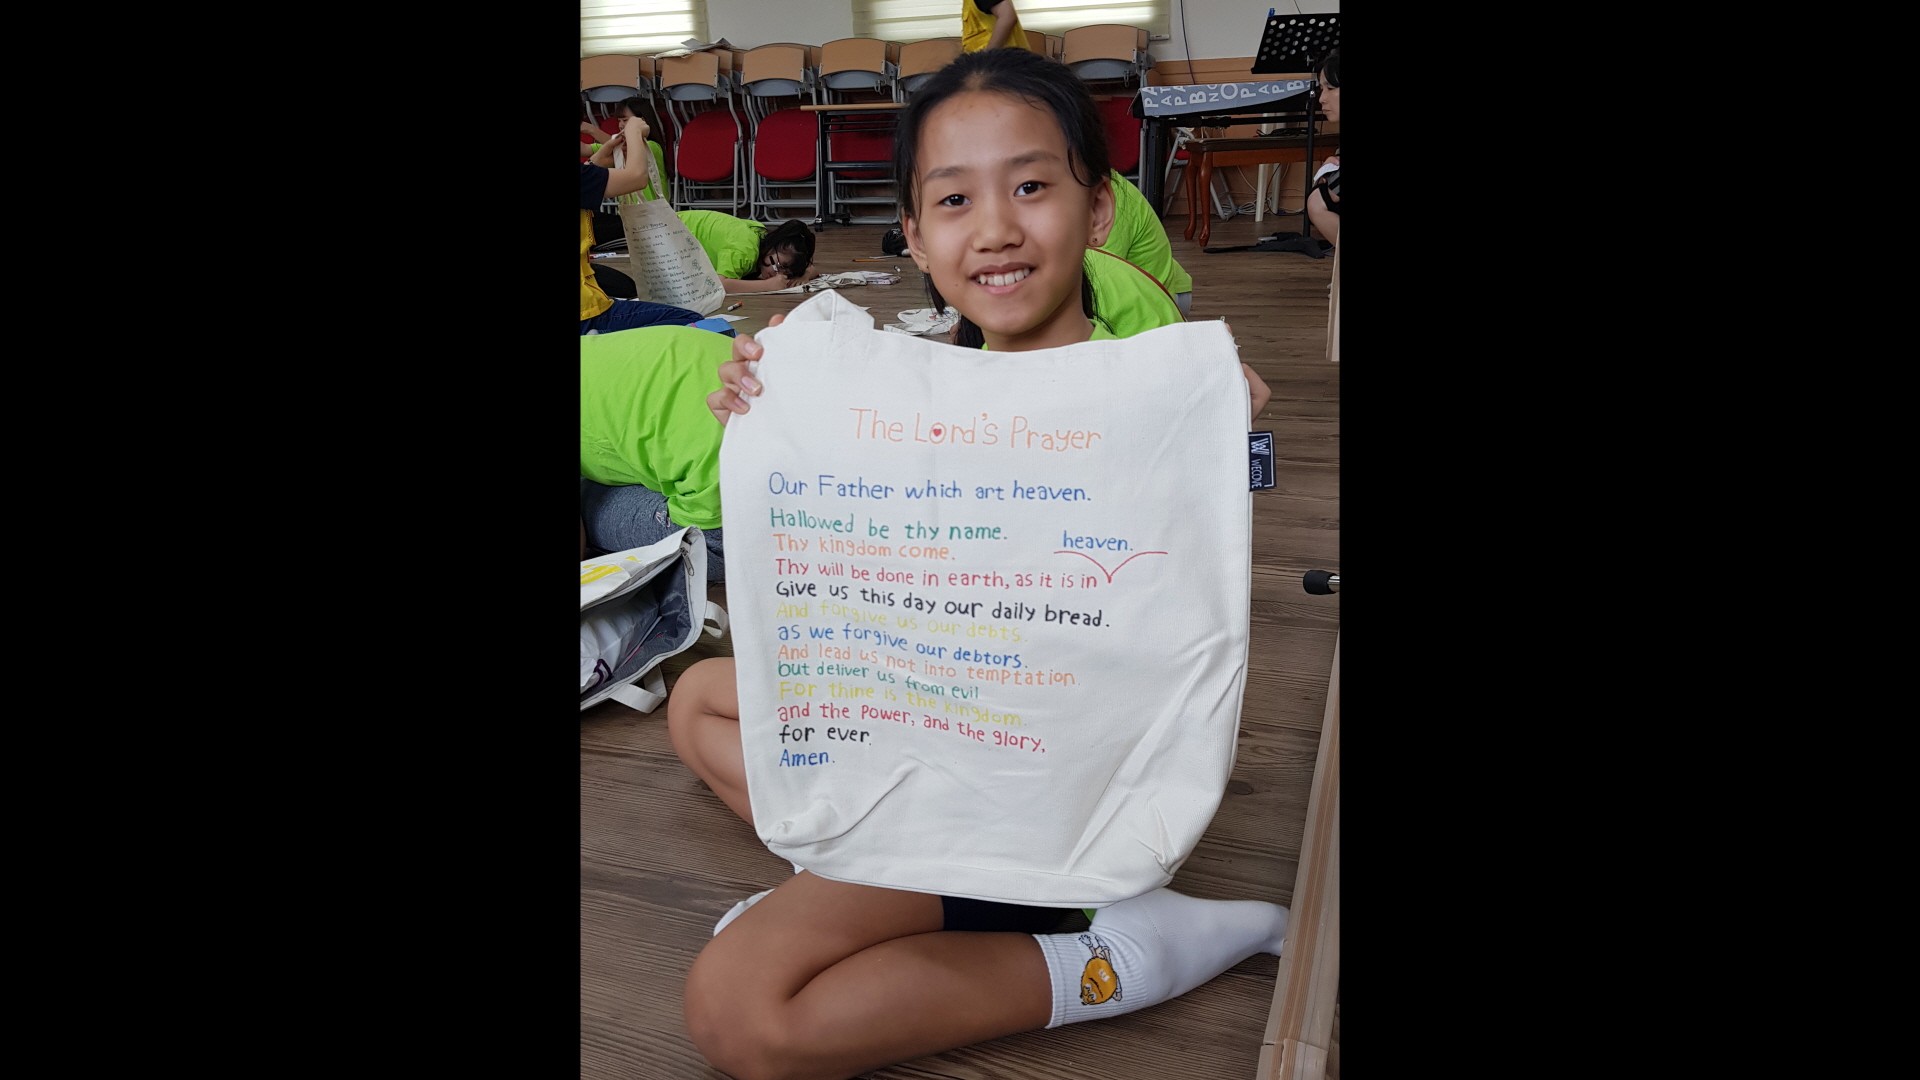 The Lord's Prayer
Our Father which art heaven.
Hallowed be thy name.
Thy kingdom come.
heaven.
Thy will be done in earth, as it is in
Give us this day our daily bread.
And forgive us our debts.
as we forgive our debtors.
And lead us not into temptation.
but deliver us from evil
For thine is the kingdom.
and the power, and the glory,
for ever.
Amen.
W WECOVE